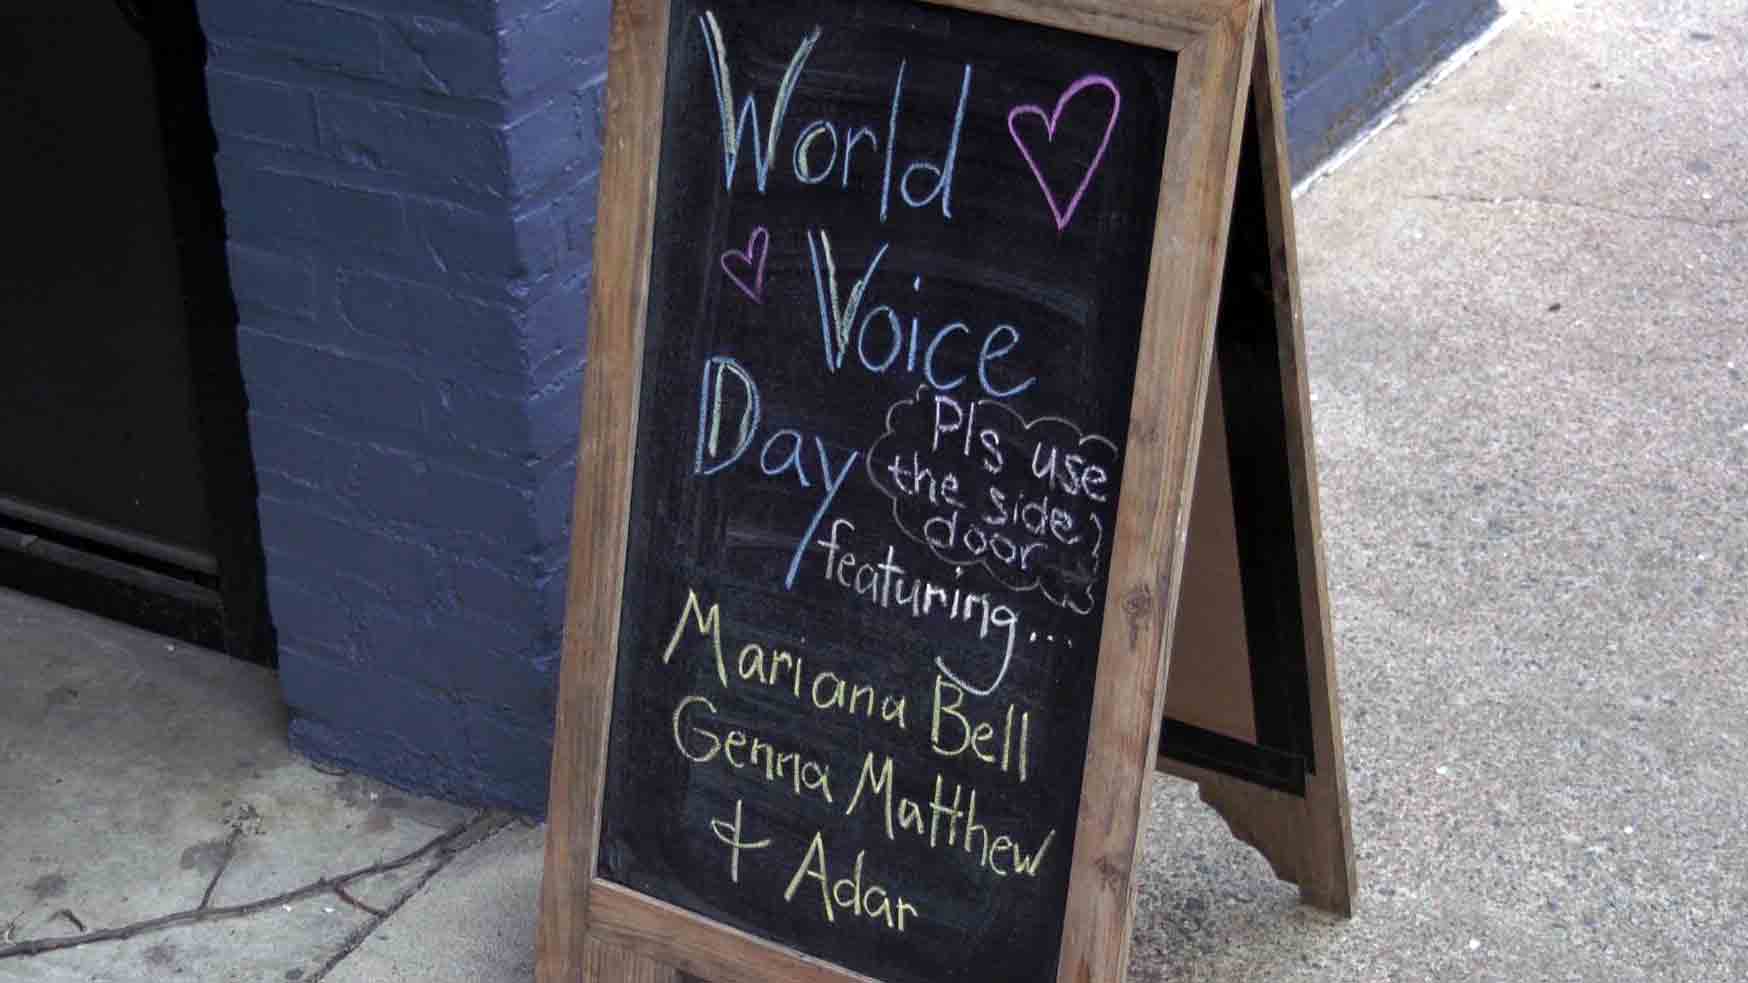 World
Voice
Day
Pls use
the side
door
featuring...
Mariana Bell
Genna Matthew
& Adar